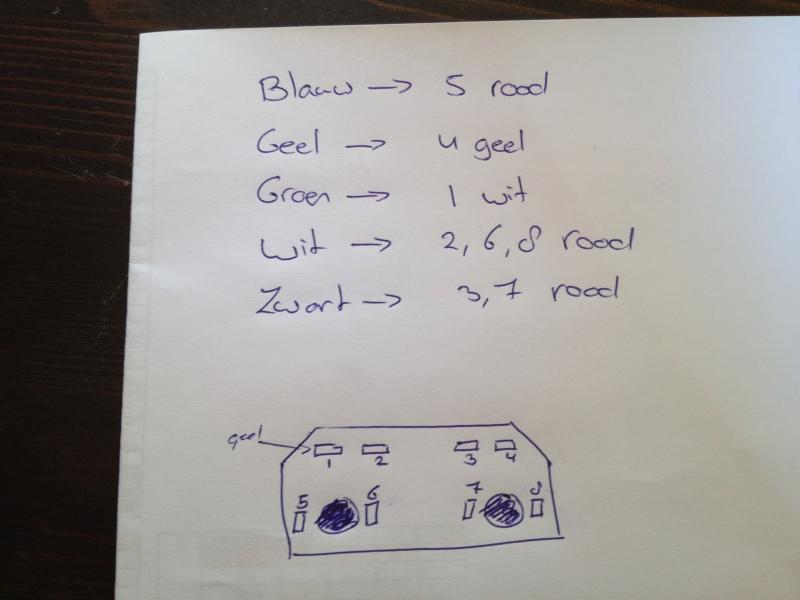 Blauw → 5 rood
Geel → 4 geel
Groen → 1 wit
Wit → 2, 6, 8 rood
Zwart → 3, 7 rood
geel
1 2 3 4
5 6 7 8